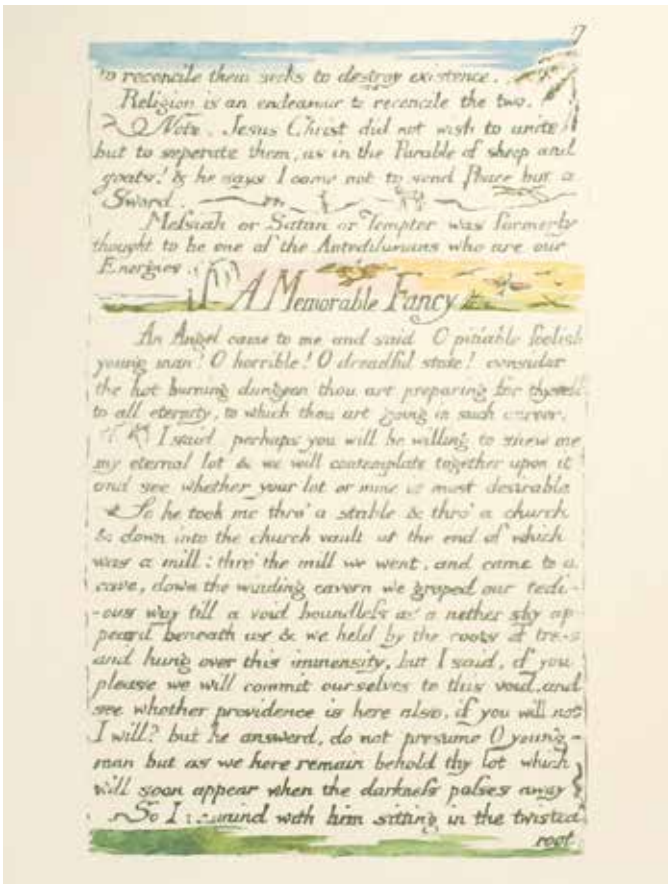 17
to reconcile them seeks to destroy existence.
Religion is an endeavour to reconcile the two.
Note. Jesus Christ did not wish to unite
but to seperate them, as in the Parable of sheep and
goats! & he says I came not to send Peace but a
Sword.
Messiah or Satan or Tempter was formerly
thought to be one of the Antediluvians who are our
Energies
A Memorable Fancy
An Angel came to me and said O pitiable foolish
young man! O horrible! O dreadful state! consider
the hot burning dungeon thou art preparing for thyself
to all eternity, to which thou art going in such career.
I said perhaps you will be willing to shew me
my eternal lot & we will contemplate together upon it
and see whether your lot or mine is most desirable
So he took me thro' a stable & thro' a church
& down into the church vault at the end of which
was a mill: thro' the mill we went, and came to a
cave, down the winding cavern we groped our tedi-
-ous way till a void boundless as a nether sky ap-
peard beneath us & we held by the roots of trees
and hung over this immensity, but I said, if you
please we will commit ourselves to this void, and
see whether providence is here also, if you will not
I will? but he answerd, do not presume O young-
man but as we here remain behold thy lot which
will soon appear when the darkness passes away
So I remaind with him sitting in the twisted
root